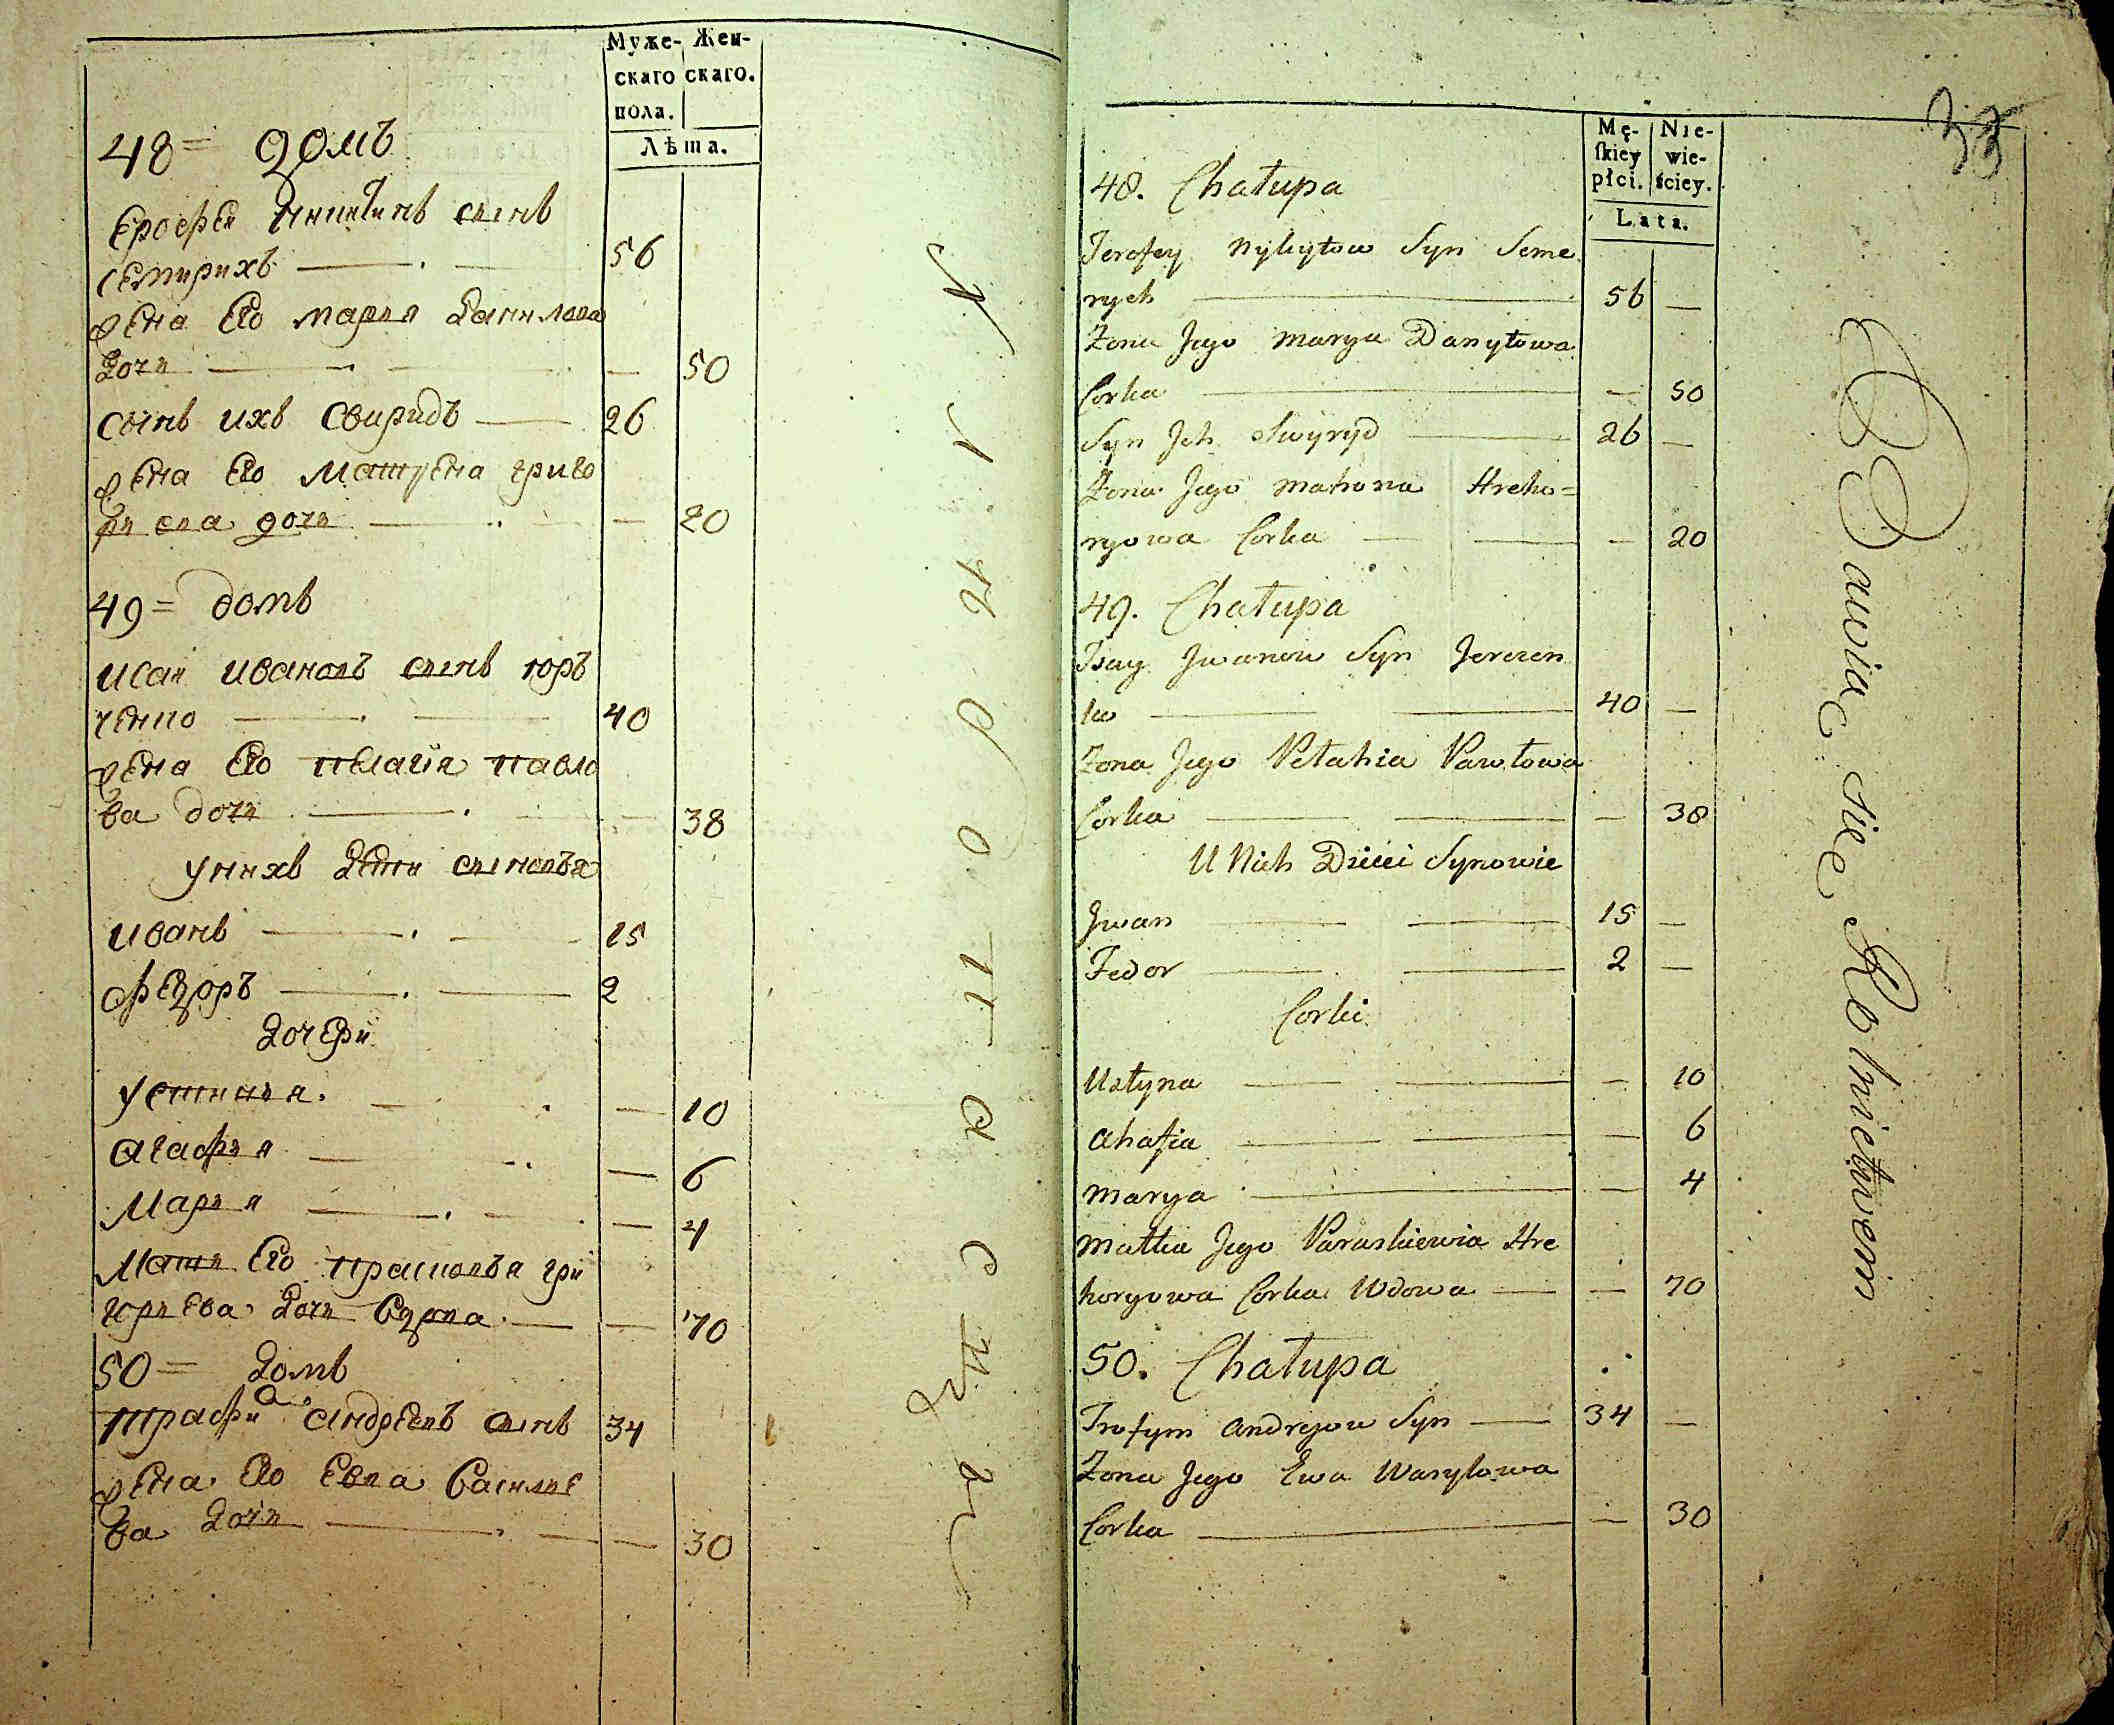 Муже- Жен-
скаго скаго.
пола.
Лѣта.
48= домъ
Ерофей Никитинъ сынъ
семирихъ — 56
жена Его марья Данилова
дочь — 50
сынъ ихъ Свиридъ — 26
жена Его Матрена григо
рьева дочь — 20
49= домъ
исай ивановъ сынъ юръ
ченко — 40
жена Его пелагия павло
ва дочь — 38
у нихъ дети сыновья
иванъ — 15
федоръ — 2
дочери
устинья — 10
агафья — 6
Марья — 4
Мать Его прасковья гри
горьева дочь вдова — 70
50= домъ
трофи андреевъ сынъ 34
жена Его Евва василье
ва дочь — 30
33
Mę- Nie-
skiey wie-
płci. ściey.
Lata.
48. Chałupa
Jerofey Nykytow Syn Seme
rych — 56 —
Zona Jego Marya Danyłowa
Corka — 50
Syn Jch Swyryd — 26 —
Zona Jego Matrona Hreho=
ryowa Corka — 20
49. Chałupa
Isay Jwanow Syn Jurczen
ko — 40 —
Zona Jego Pełahia Pawłowa
Corka — 38
U Nich Dzieci Synowie
Jwan — 15 —
Fedor — 2 —
Corki
Ustyna — 10
Ahafia — 6
Marya — 4
Matka Jego Paraskiewia Hre
horyowa Corka Wdowa — 70
50. Chałupa
Trofym Andreyow Syn — 34 —
Zona Jego Ewa Wasylowa
Corka — 30
Bawią się Rolnictwem